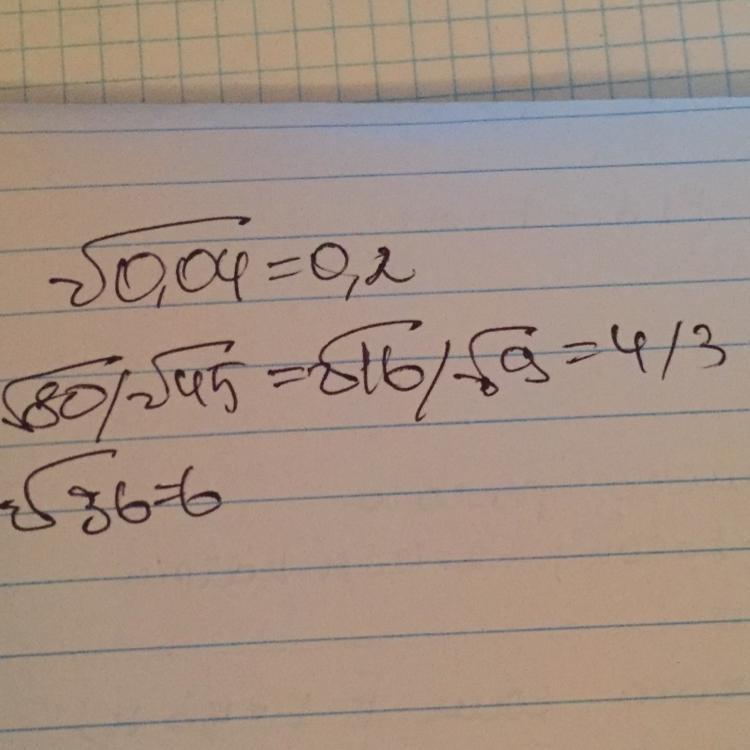 √0,04 = 0,2
√80/√45 = √16/√9 = 4/3
√36=6